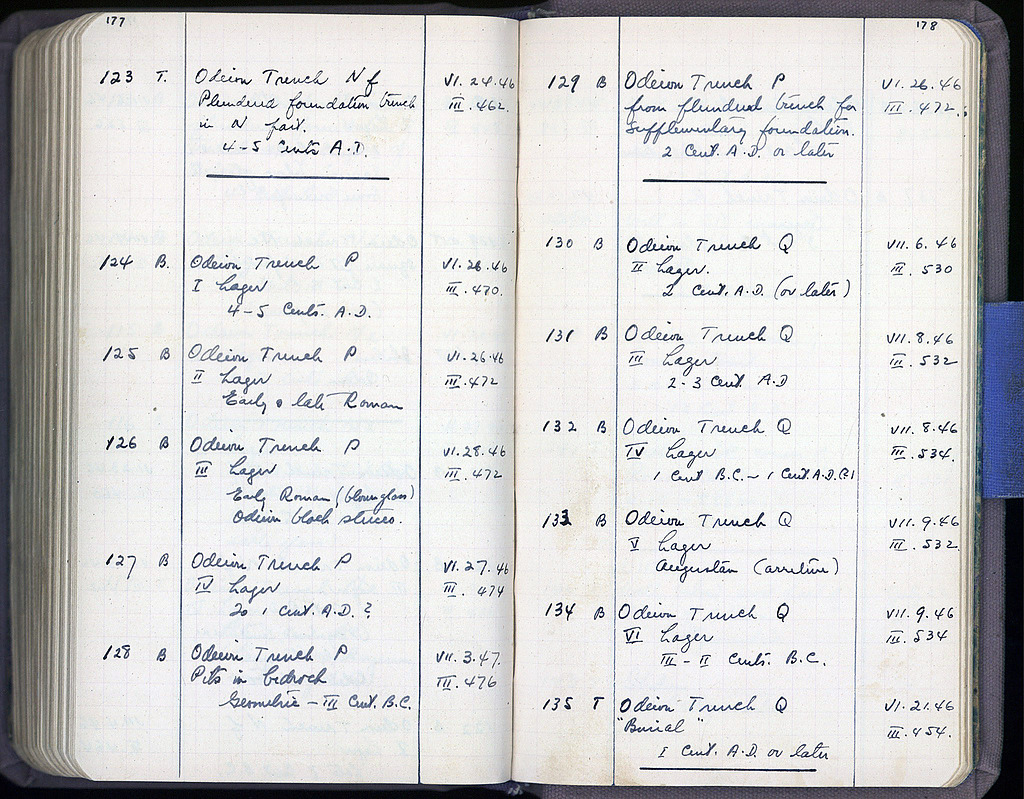 177
123 T. Odeion Trench N of VI.24.46
Plundered foundation trench III.462.
in N part.
4-5 Cents A.D.
124 B. Odeion Trench P VI.26.46
I Lager III.470.
4-5 Cents. A.D.
125 B Odeion Trench P VI.26.46
II Lager III.472
Early & late Roman
126 B Odeion Trench P VI.28.46
III Lager III.472
Early Roman (blown glass)
Odeion block
127 B Odeion Trench P VI.27.46
IV Lager III.474
to 1 Cent. A.D. ?
128 B Odeion Trench P VII.3.47.
Pits in bedrock III.476
Geometric - III Cent B.C.
178
129 B Odeion Trench P VI.26.46
from plundered trench for III.472.
supplementary foundation.
2 Cent. A.D. or later
130 B Odeion Trench Q VII.6.46
II Lager. III.530
2 Cent. A.D. (or later)
131 B Odeion Trench Q VII.8.46
III Lager III.532
2-3 Cent A.D
132 B Odeion Trench Q VII.8.46
IV Lager III.534.
1 Cent B.C. - 1 Cent A.D.(?)
133 B Odeion Trench Q VII.9.46
V Lager III.532.
Augustan (arretine)
134 B Odeion Trench Q VII.9.46
VI Lager III.534
III - II Cents. B.C.
135 T Odeion Trench Q VI.21.46
"Burial" III.454.
I Cent. A.D. or later